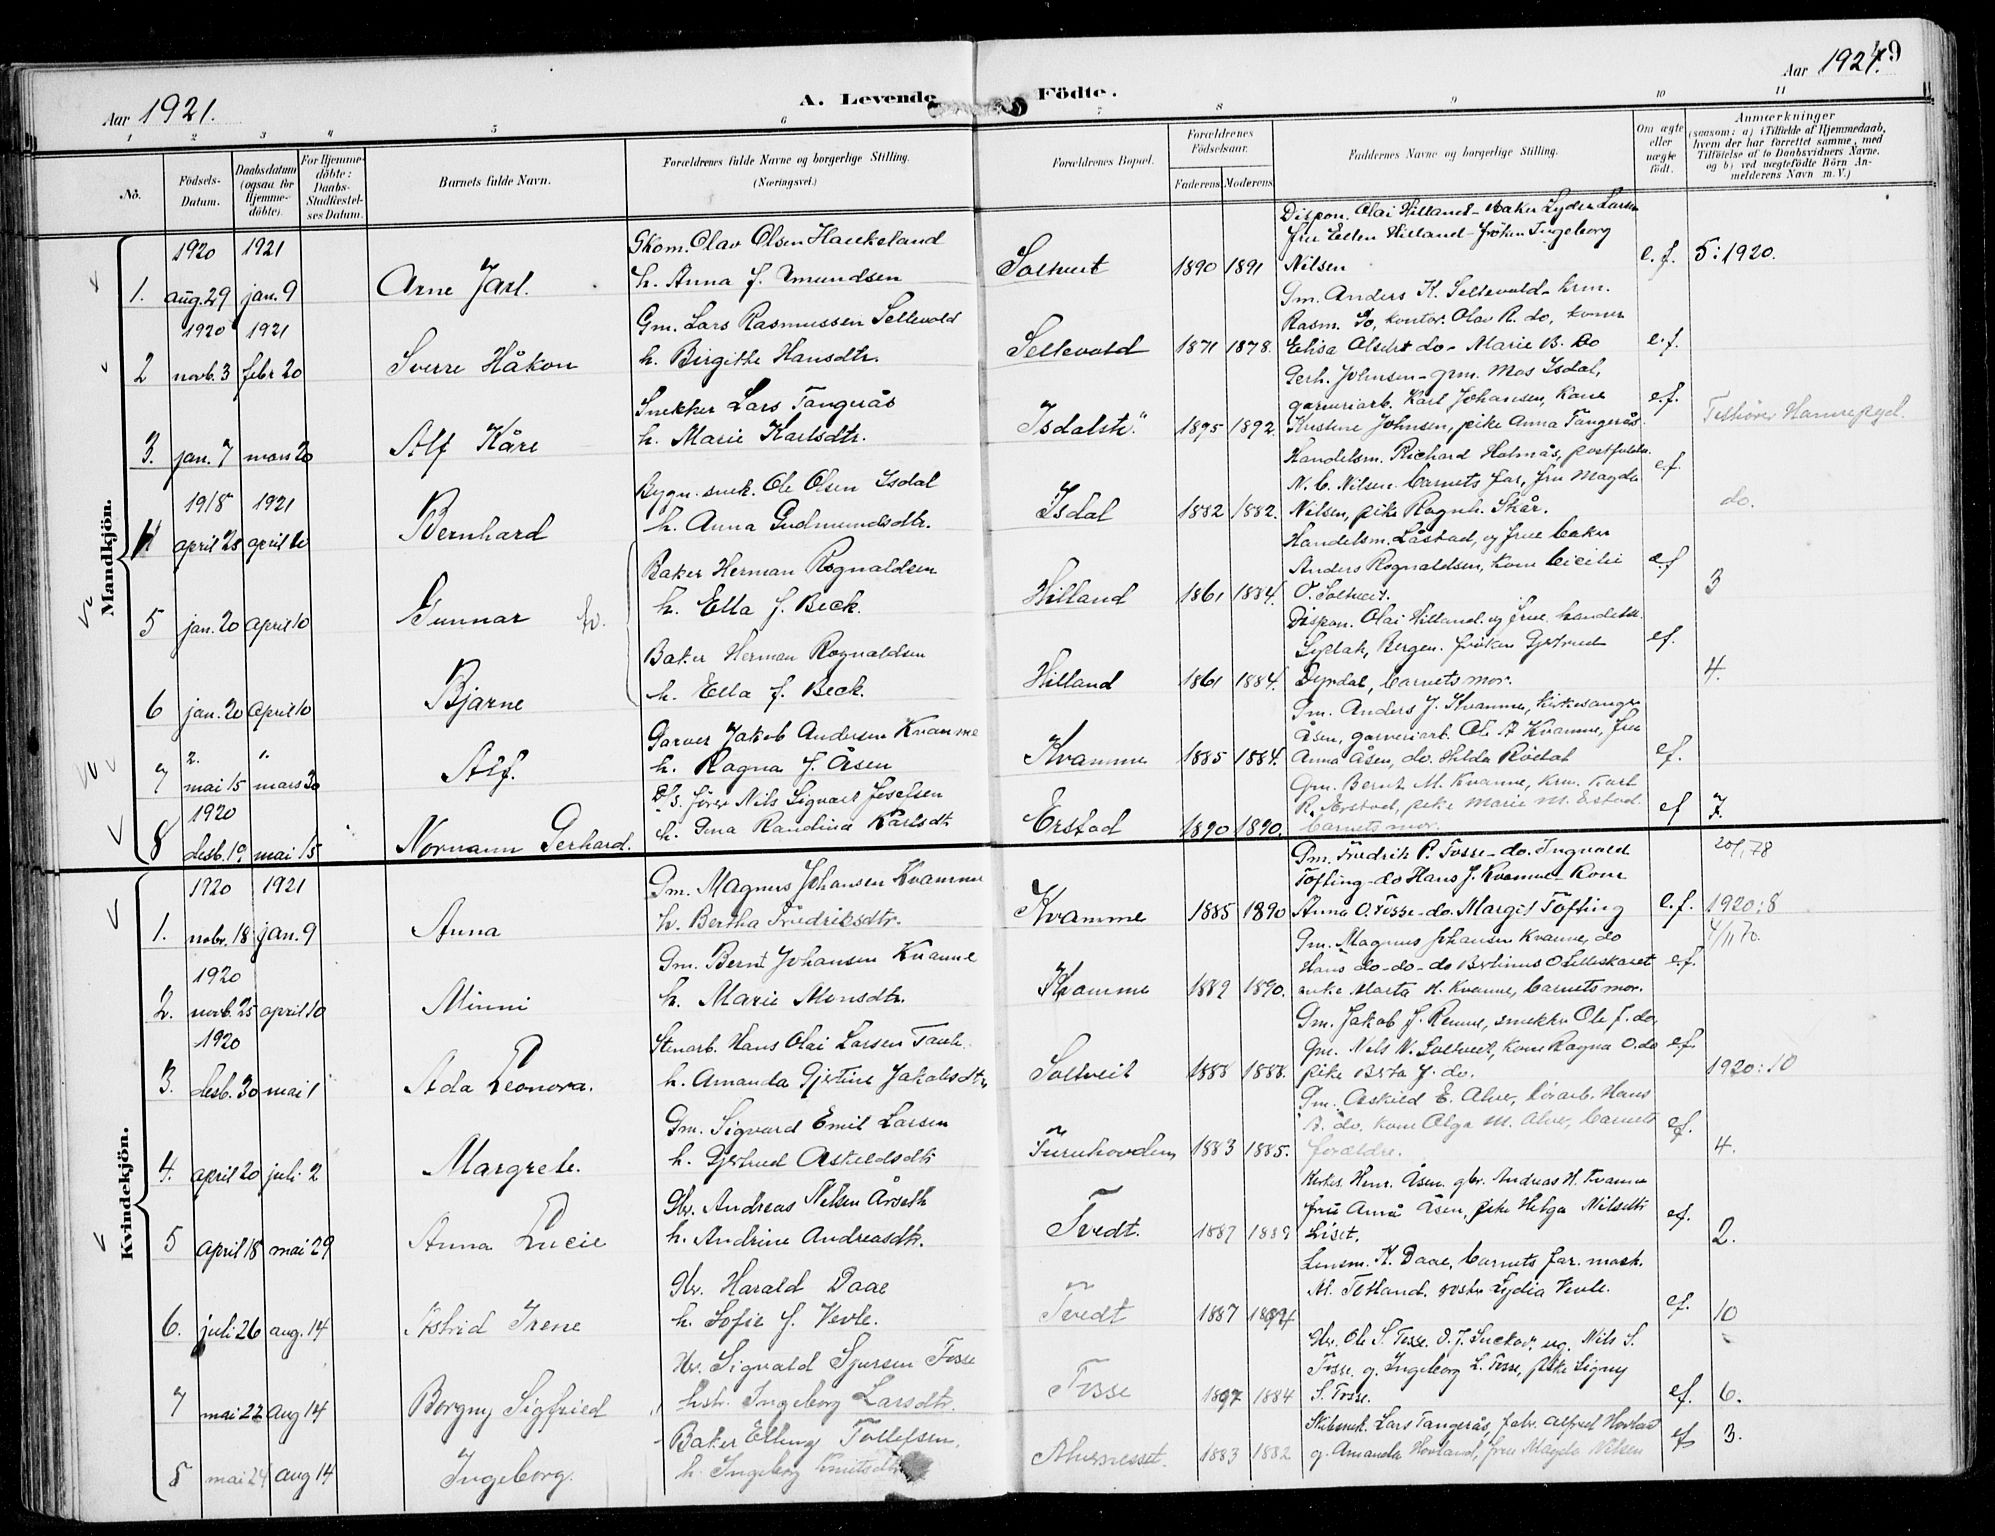 Aar 1921.
A. Levende Födte.
Aar 1921.
49
1 2 3 4 5 6 7 8 9 10 11
No.
Födsels-Datum.
Daabsdatum (ogsaa for Hjemme-döbte).
For Hjemme-döbte: Daabs-Stadfæstel-ses Datum.
Barnets fulde Navn.
Forældrenes fulde Navne og borgerlige Stilling. (Næringsvei.)
Forældrenes Bopæl.
Forældrenes Födselsaar.
Faderens Moderens
Faddernes Navne og borgerlige Stilling.
Om ægte eller uægte födt.
Anmærkninger
(saasom: a) i Tilfælde af Hjemmedaab, hvem der har forrettet samme, med Tilföielse af to Daabsvidners Navne, og b) ved uægtefödte Börn Anmelderens Navn m. V.)
Mandkjön.
1920 1921
1. aug. 29 jan. 9 Arne Jarl.
Olav Olsen Haukeland
h. Anna f. Amundsen
Soltveit 1890 1891
Dispon. Olai Hilland - baker Lyder Larsen
fru Ellen Hilland - fröken Ingeborg
Nilsen
e.f. 5:1920.
1920 1921
2 novb. 3 febr 20 Sverre Håkon
Gm. Lars Rasmussen Sellevold
h. Birgithe Hansdtr.
Sellevold 1871 1878.
Gm. Anders K. Sellevold - krm.
Rasm. do, kontor. Olav R. do, kone
Elisa Olsdtr do - Marie B. do
e.f.
3. jan. 7 mars 20 Alf Kåre
Snekker Lars Tangerås
h. Marie Karlsdtr.
Isdalstö 1895 1892.
Gerh. Johnsen - gm. Mos Isdal,
garveriarb. Karl Johansen, kone
Kristine Johnsen, pike Anna Tangerås
e.f.
1918 1921
4 april 28 april 10 Bernhard
Bygn. snek. Ole Olsen Isdal
h. Anna Gudmundsdtr.
Isdal 1882 1882.
Handelsm. Richard Holmås,
N. C. Nilsen barnets far, fru Magda
Nilsen, pike Ragnh. Skår.
e.f. do.
5 jan. 20 april 10 Gunnar tv.
Baker Herman Rognaldsen
h. Ella f. Beck.
Hilland 1861 1884.
Handelsm. Låstad, og frue baker
Anders Rognaldsen, kone Cicilie
O. Soltveit.
e.f 3
6 jan. 20 april 10 Bjarne
Baker Herman Rognaldsen
h. Ella f. Beck.
Hilland 1861 1884.
Dispon. Olai Hilland og frue handelsm.
Bergen. fröken Gjertrud
Dyrdal, barnets mor.
ef. 4.
7 mai 15 mars 30 Alf.
Garver Jakob Andersen Kvamme
h. Ragna f. Åsen
Kvamme 1885 1884.
Gm. Anders J. Kvamme, kirkesanger
Åsen, garveriarb. Ole A Kvamme, fru
Anna Åsen, do. Hilda
ef.
1920
8 desb. 19 mai 15 Normann Gerhard.
D/S. förer Nils Sigvart Joselsen
h. Gina Randina Karlsdtr
Erstad 1890 1890.
Gm. Bernt M. Kvamme, krm. Karl
R. Erstad, pike Marie M. Erstad
barnets mor.
ef 7.
Kvindekjön.
1920 1921
1. nobr. 18 jan. 9 Anna
Gm. Magnus Johansen Kvamme
h. Bertha Fredriksdtr.
Kvamme 1885 1890
Gm. Fredrik P. Fosse - do. Ingvald
Töfting - do Hans J. Kvamme - kone
Anna O. Fosse - do. Margit Töfting
e.f. 1920:8
20/1 78
4/11 70.
1920
2. novb. 25 april 10 Minni
Gm. Bernt Johansen Kvamme
h. Marie Monsdtr.
Kvamme 1889 1890.
Gm. Magnus Johansen Kvamme, do
Hans do - do - do Bertinus O Lilleskaret
enke Marta H. Kvamme, barnets mor.
e.f.
1920
3. desb. 30 mai 1 Ada Leonora.
Stenarb. Hans Olai Larsen
h. Amanda Gjertine Jakobsdtr
Soltveit 1888 1888.
Gm. Jakob J. Remme, snekker Ole J. do,
Gm. Nils N. Soltveit, kone Ragna O. do
pike Berta J. do.
ef. 1920:10
4. april 20 juli 2 Margrete.
Gm. Sigvard Emil Larsen
h. Gjertrud Askeldsdtr
1883 1885.
Gm. Askild E. Alver, Hans
A. do. kone Olga M. Alver, barnets
forældre.
ef. 4.
5 april 18 mai 29 Anna Lucie
Gbr. Andreas Nilsen Årseth
h. Andrine Andreasdtr.
Tvedt. 1887 1889
Kirkes. Henr. Åsen, gbr. Andreas H. Kvamme
frue Anna Åsen, pike Helga Nilsdtr
Liset.
ef. 2.
6. juli 26 aug. 14 Astrid Irene
Gbr. Harald Daae
h. Sofie f. Vevle.
Tvedt 1887 1894
Lensm. K. Daae, barnets far. mask.
M. Totland, Lydia Vevle.
ef. 10
7 mai 22 aug 14 Borgny Sigfried
Gbr. Sigvald Sjursen Fosse
hstr. Ingeborg Larsdtr.
Fosse 1897 1884
Gbr. Ole S. Fosse. og. Nils S.
Fosse. g. Ingeborg L. Fosse, pike Signy
S. Fosse.
ef. 6.
8 mai 24 aug 14 Ingeborg.
Baker Elling Tollefsen.
h. Ingeborg Knutsdtr
Alvernesset. 1883 1882
Lars Tangerås, fabr. Alfred Hovland
g. Amanda Hovland, frue Magda Nilsen
ef 3.